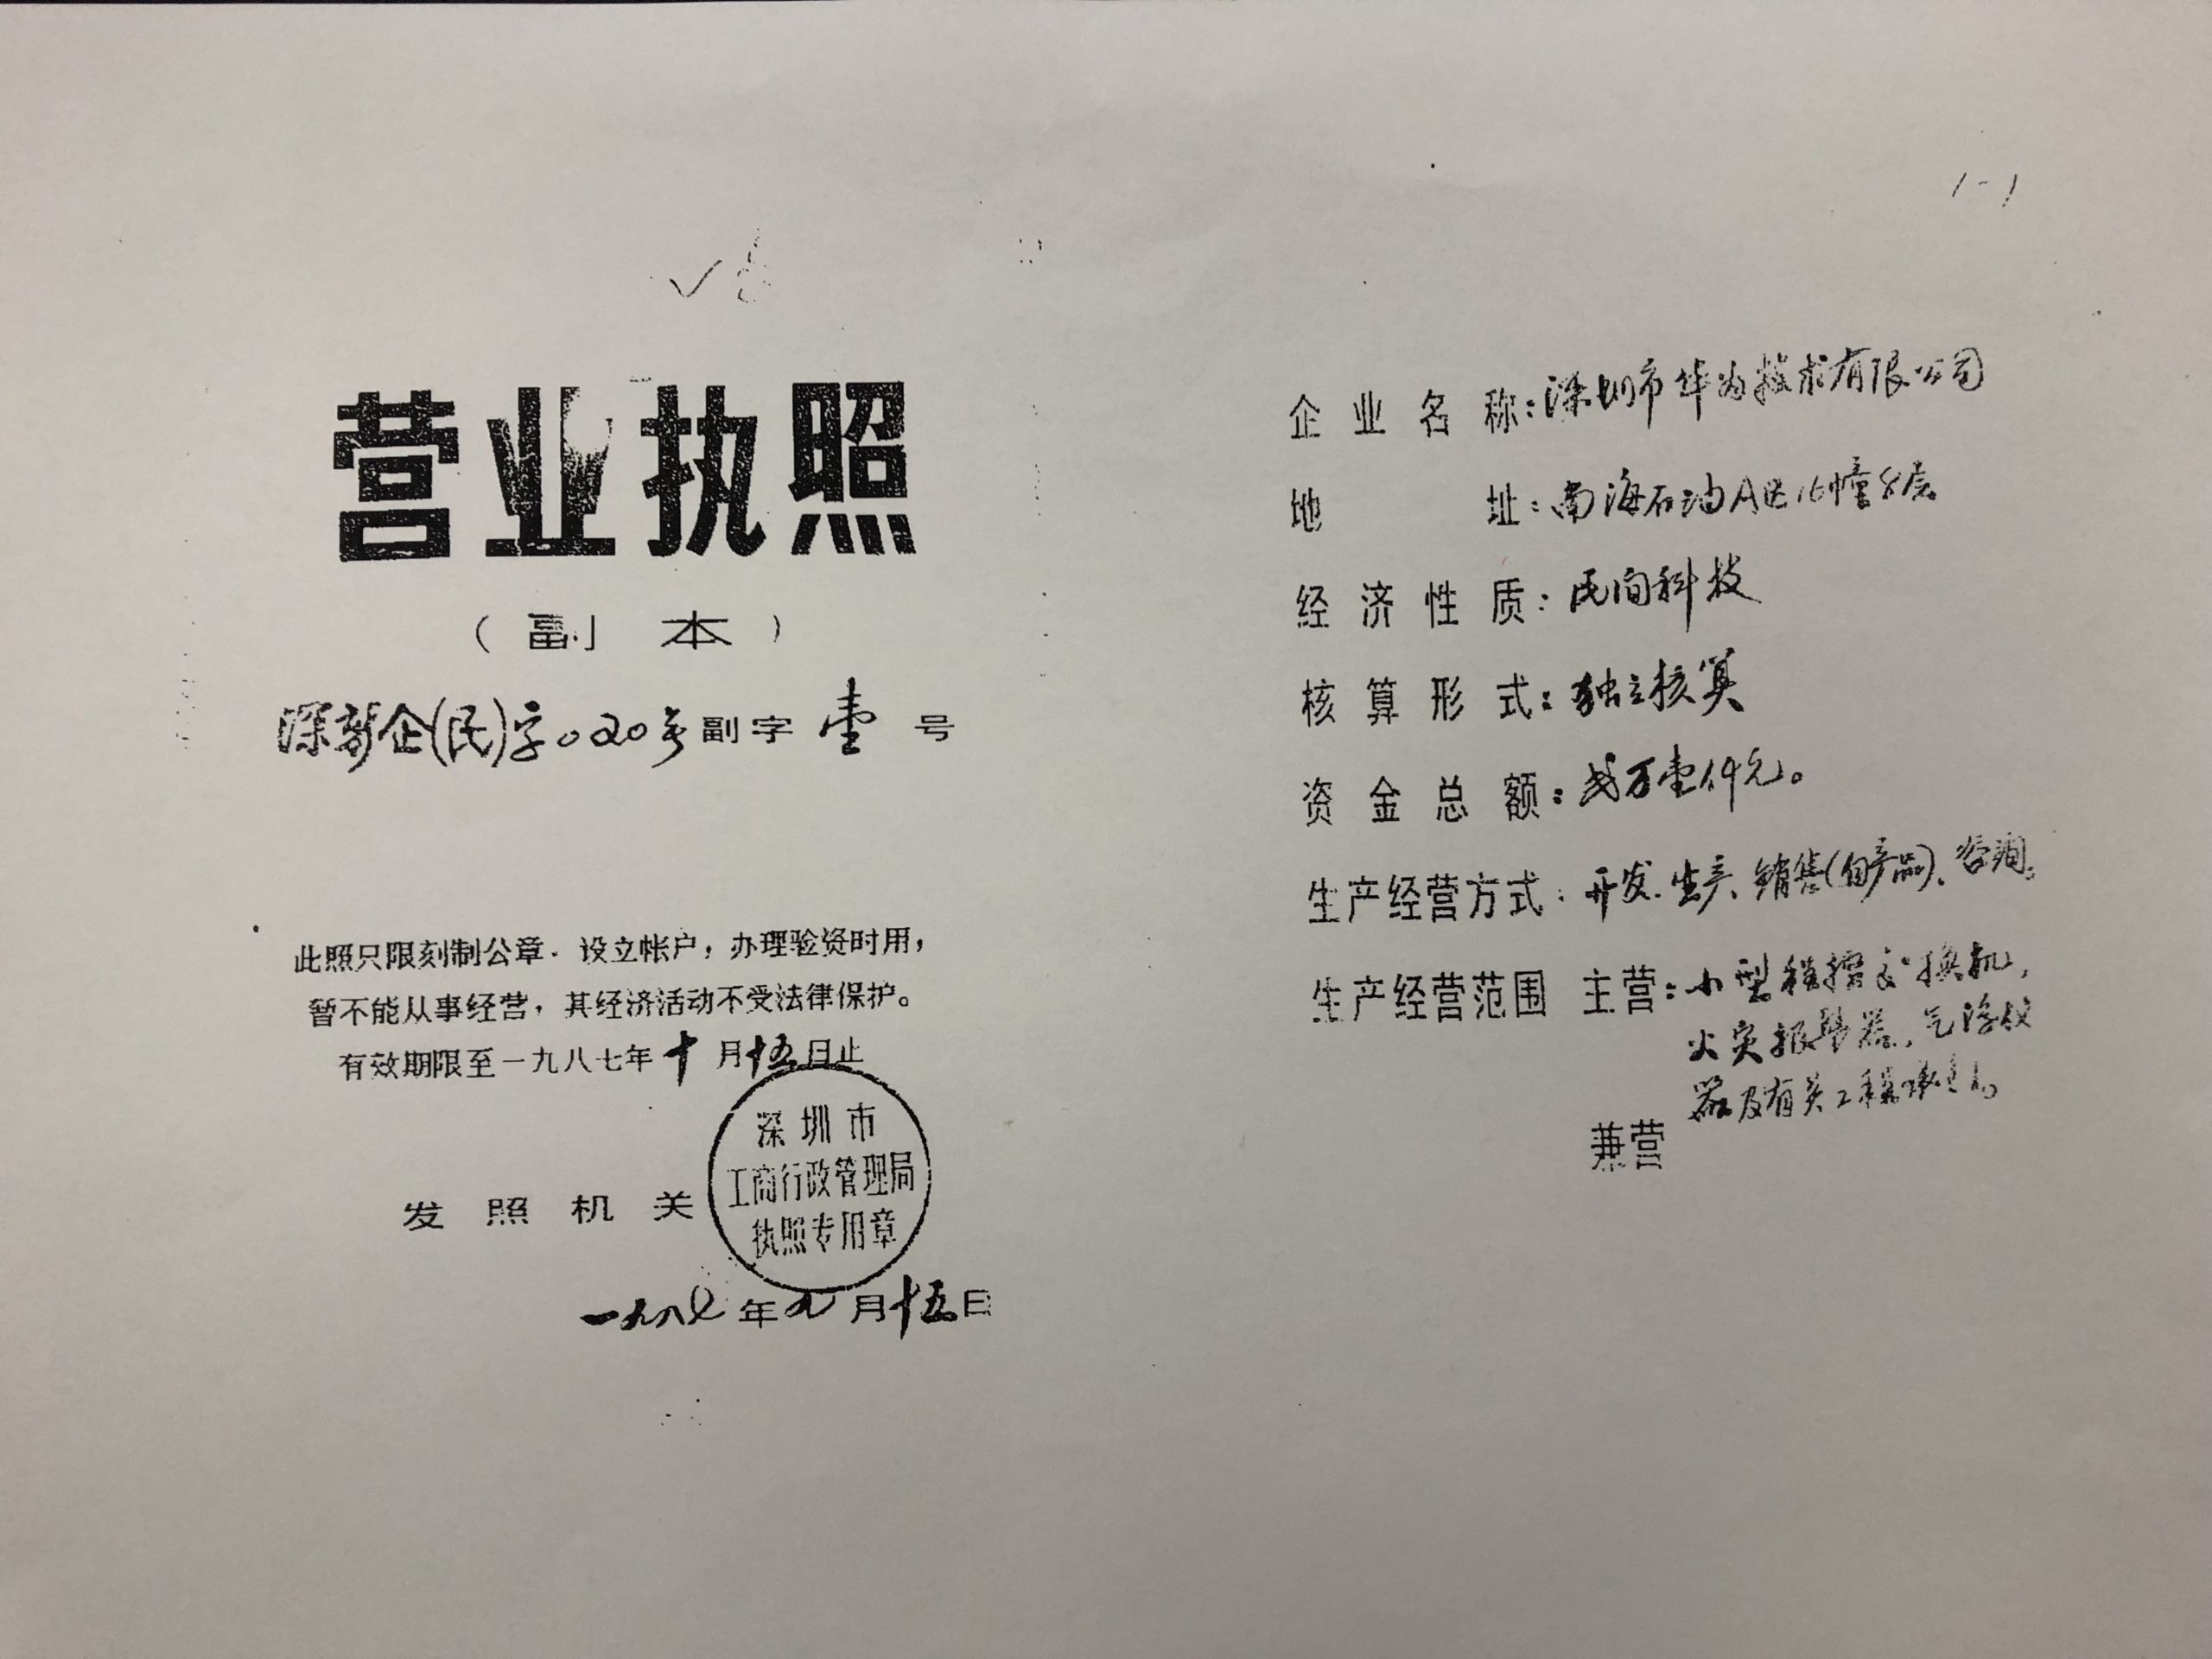 1-1
营业执照
（副 本）
深新企(民)字020号副字 壹 号
此照只限刻制公章．设立帐户，办理验资时用，
暂不能从事经营，其经济活动不受法律保护。
有效期限至一九八七年十月十五日止
发 照 机 关
深圳市
工商行政管理局
执照专用章
一九八七年九月十五日
企业名称：深圳市华为技术有限公司
地 址：南海石油A区16幢8层
经济性质：民间科技
核算形式：独立核算
资金总额：贰万壹仟元。
生产经营方式：开发、生产、销售(自产品)、咨询。
生产经营范围 主营：小型程控交换机，
火灾报警器，气浮仪
器及有关工程承
兼营